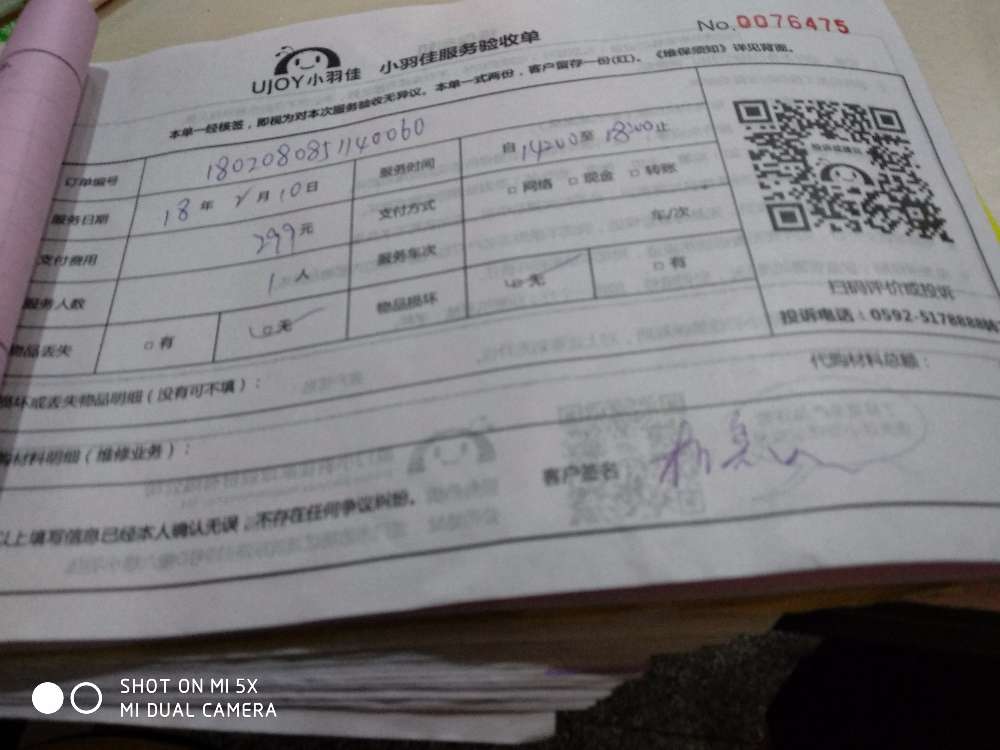 No.0076475
UJOY小羽佳 小羽佳服务验收单
本单一经核签，即视为对本次服务验收无异议。本单一式两份，客户留存一份(红)。《维保须知》详见背面。
订单编号 1802080851140060
服务时间 自 14:00 至 18:00 止
服务日期 18 年 2 月 10 日
支付方式 □ 网络 □ 现金 □ 转账
支付费用 299 元
服务车次 车/次
服务人数 1 人
物品损坏 □ 无 □ 有
物品丢失 □ 有 □ 无
投诉或建议
扫码评价或投诉
投诉电话：0592-5178888转
损坏或丢失物品明细（没有可不填）：
代购材料总额：
购材料明细（维修业务）：
客户签名
以上填写信息已经本人确认无误，不存在任何争议纠纷。
SHOT ON MI 5X
MI DUAL CAMERA